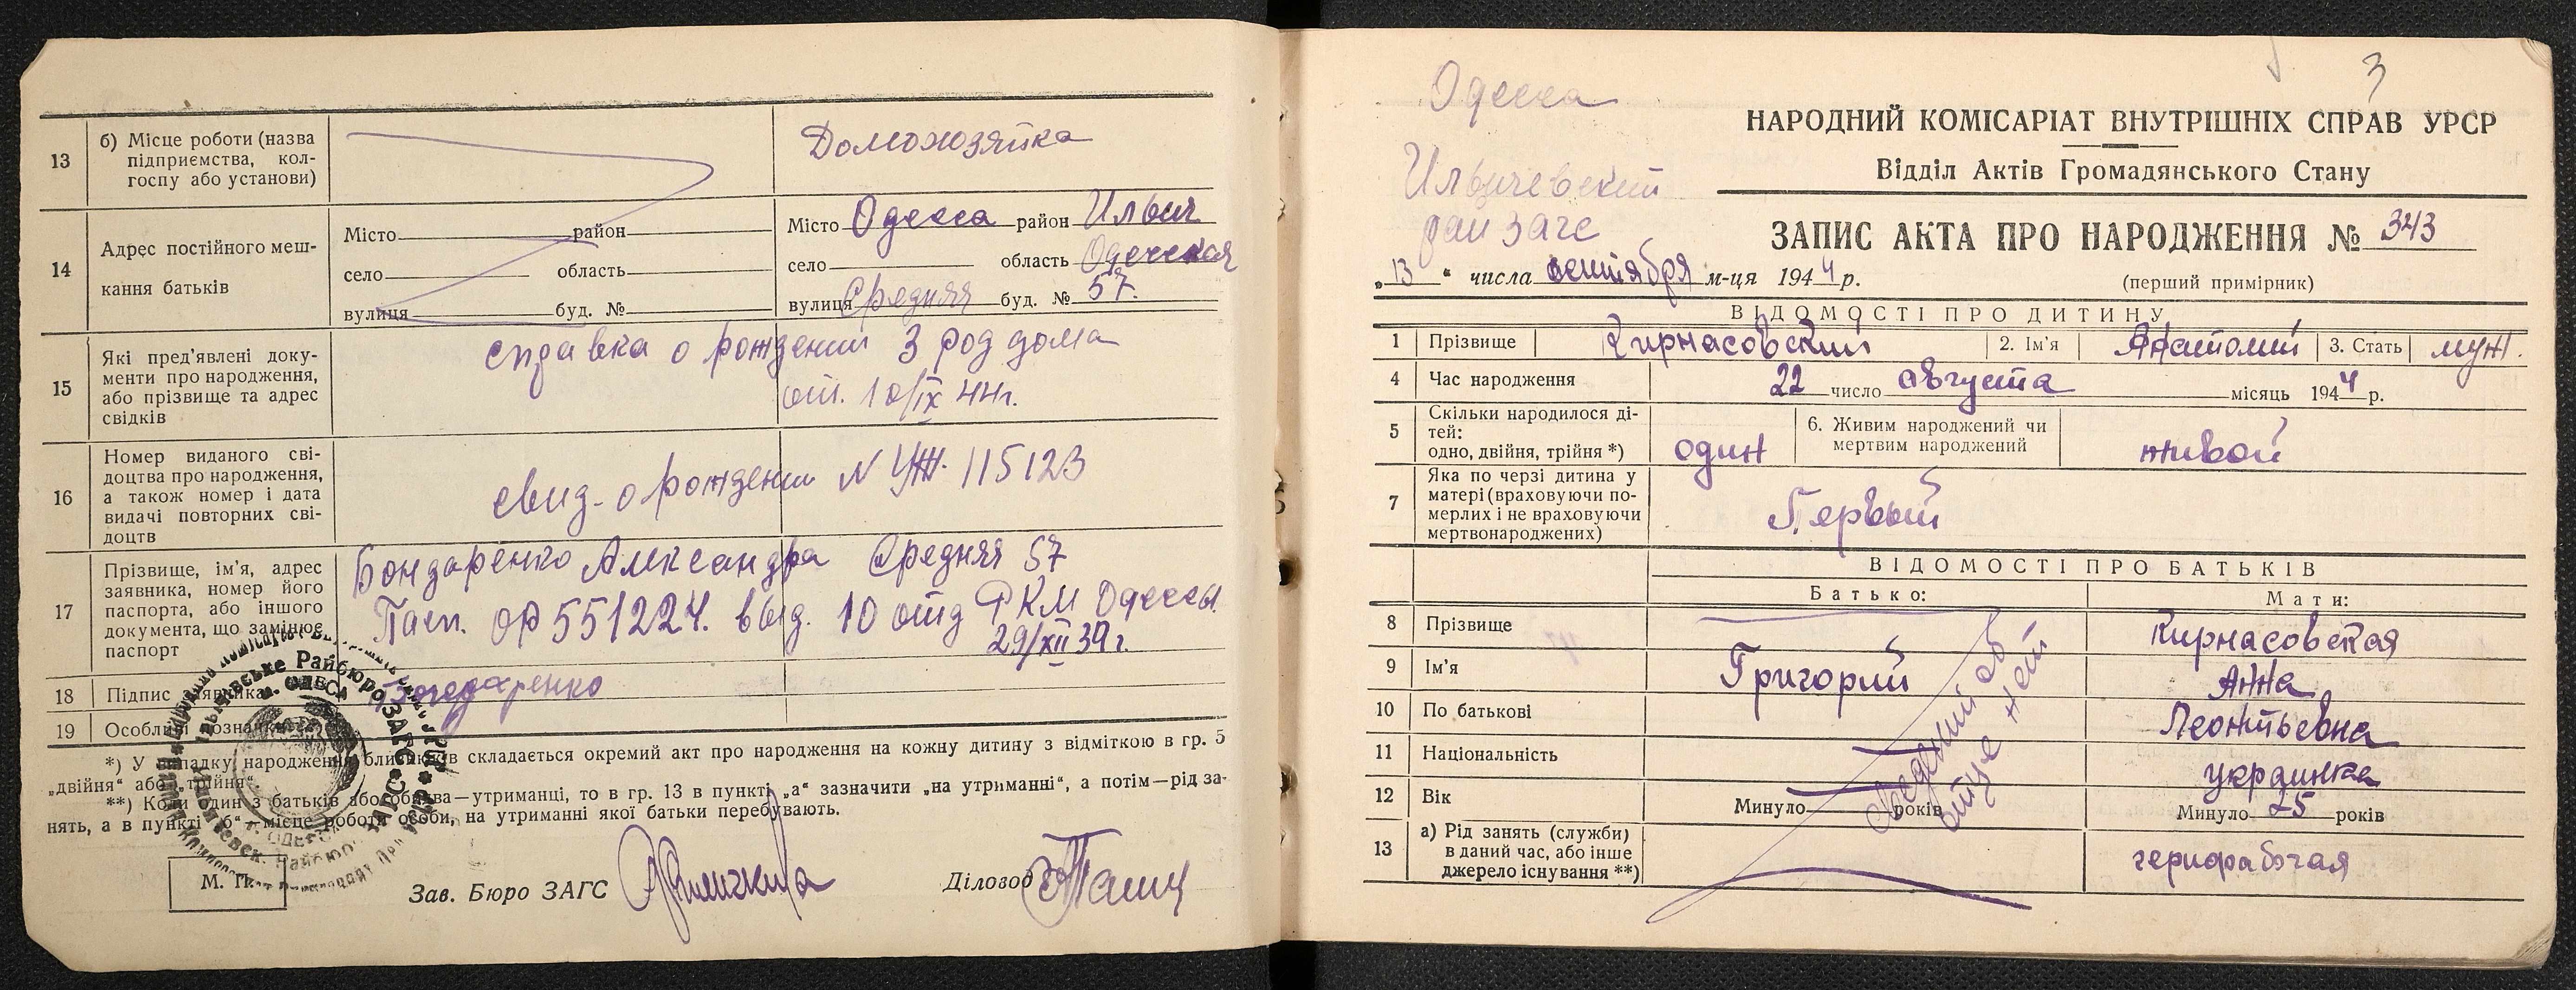 13
б) Місце роботи (назва
підприємства, кол-
госпу або установи)
Домохозяйка
14
Адрес постійного меш-
кання батьків
Місто район
село область
вулиця буд. №
Місто Одесса район Ильич
село область Одесская
вулиця Средняя буд. № 57.
15
Які пред'явлені доку-
менти про народження,
або прізвище та адрес
свідків
справка о рождении 3 род дома
от. 10/IX 44г.
16
Номер виданого сві-
доцтва про народження,
а також номер і дата
видачі повторних сві-
доцтв
свид-о рождении N УЖ. 115123
17
Прізвище, ім'я, адрес
заявника, номер його
паспорта, або іншого
документа, що замінює
паспорт
Бондаренко Александра Средняя 57
Пасп. ОР 551224. выд. 10 отд РКМ Одессы
29/XII 39г.
18 Підпис заявника Бондаренко
19 Особливі познанки
*) У випадку народження близнюків складається окремий акт про народження на кожну дитину з відміткою в гр. 5
„двійня“ або „трійня“
**) Коли один з батьків або обидва—утриманці, то в гр. 13 в пункті „а“ зазначити „на утриманні“, а потім—рід за-
нять, а в пункті „б“—місце роботи особи, на утриманні якої батьки перебувають.
М. П.
Зав. Бюро ЗАГС
Діловод
3
Одесса
Ильичевский
райзагс
НАРОДНИЙ КОМІСАРІАТ ВНУТРІШНІХ СПРАВ УРСР
Відділ Актів Громадянського Стану
ЗАПИС АКТА ПРО НАРОДЖЕННЯ № 343
„13“ числа сентября м-ця 1944 р.
(перший примірник)
ВІДОМОСТІ ПРО ДИТИНУ
1 Прізвище Кирнасовский 2. Ім'я Анатолий 3. Стать муж.
4 Час народження 22 число августа місяць 1944 р.
5
Скільки народилося ді-
тей:
одно, двійня, трійня *)
один
6. Живим народжений чи
мертвим народжений
живой
7
Яка по черзі дитина у
матері (враховуючи по-
мерлих і не враховуючи
мертвонароджених)
Первый
ВІДОМОСТІ ПРО БАТЬКІВ
Батько: Мати:
8 Прізвище Кирнасовская
9 Ім'я Григорий Анна
10 По батькові Леонтьевна
11 Національність украинка
12 Вік Минуло років Минуло 25 років
Сведений об
отце нет
13
а) Рід занять (служби)
в даний час, або інше
джерело існування **)
чернорабочая